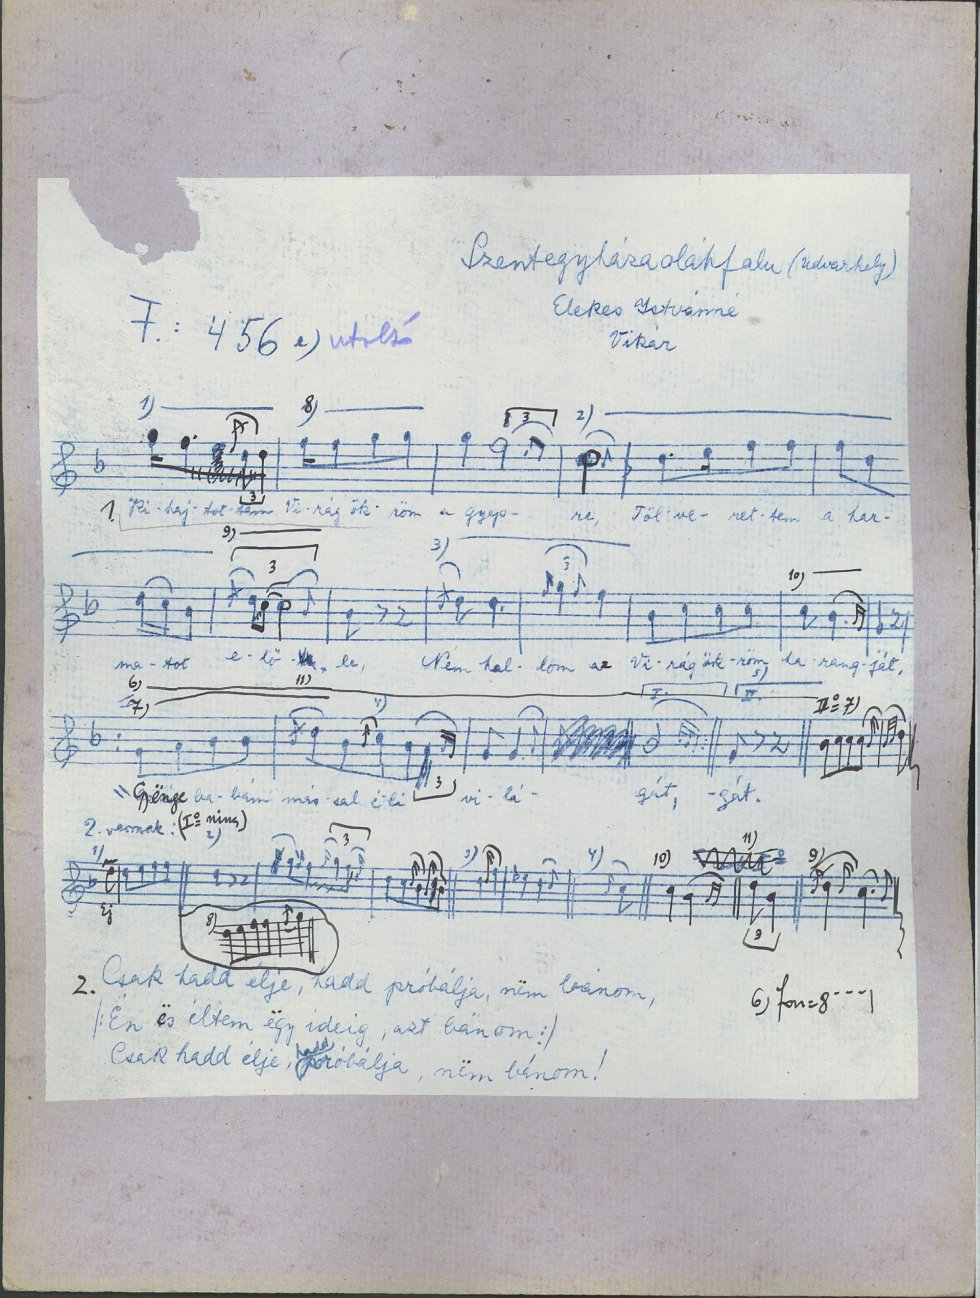 Szentegyházaoláhfalu (Udvarhely)
Elekes Istvánné
Vikár
F.: 456 e) utolsó
1) 8) 3 2)
3
1. Ki-haj-tot-tam Vi-rág ök-röm a gyep- re, Töl-ve- ret-tem a har-
9)
3 3) 3 10)
ma-tot e-lő- le, Nem hal-lom az Vi-rág ök-röm ha-rang-ját,
5)
6) 11) I. II.
7) 4) IIº 7)
3
Gyënge ba-bám más-sal é-li vi-lá- gát, -gát.
2. versszak: (Iº nincs)
1) 2) 3 3) 4) 10) 11) 9)
Ej 3
8)
2. Csak hadd élje, hadd próbálja, nëm bánom,
6) fon=8---1
|: Én ës éltem ëgy ideig, azt bánom :|
Csak hadd élje, hadd próbálja, nëm bánom!